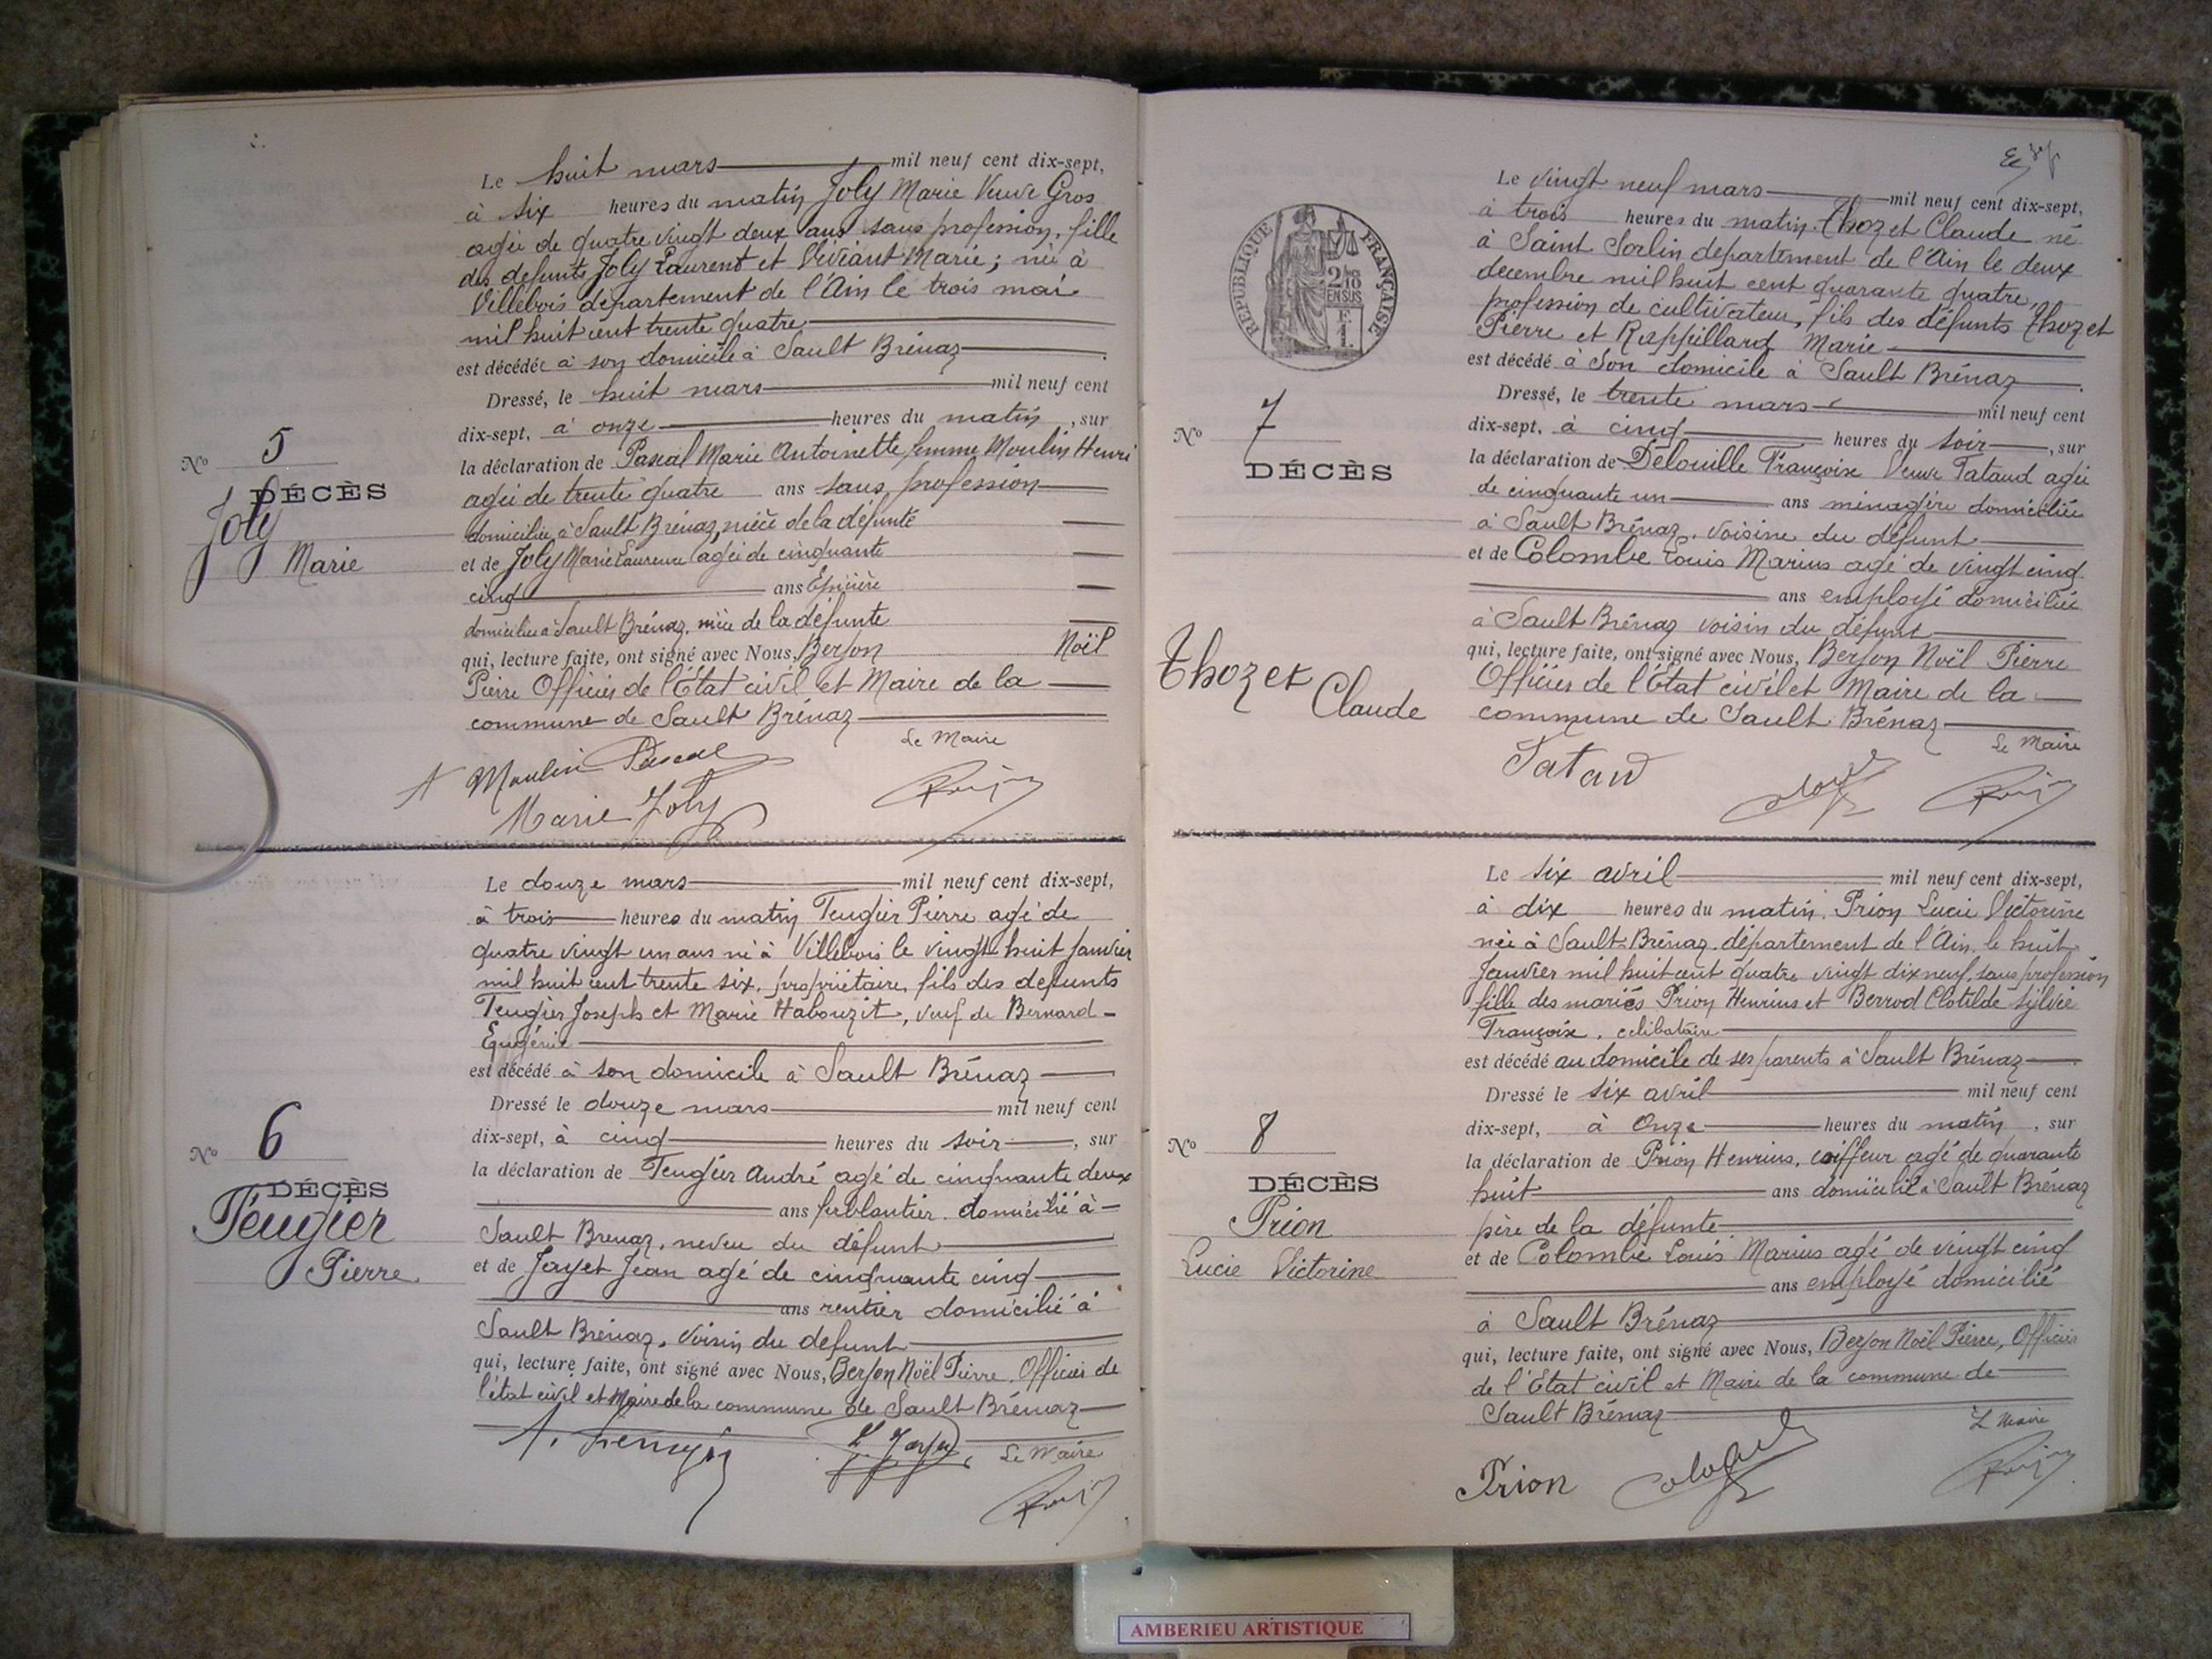 Le huit mars mil neuf cent dix-sept,
à six heures du matin Joly Marie Veuve Gros
agée de quatre vingt deux ans sans profession, fille
des defunts Joly Laurent et Viviant Marie; née à
Villebois département de l'Ain le trois mai
mil huit cent trente quatre
est décédée à son domicile à Sault Brénaz
Dressé, le huit mars mil neuf cent
dix-sept, à onze heures du matin, sur
la déclaration de Pascal Marie Antoinette femme Moulin Henri
agée de trente quatre ans sans profession
domiciliée à Sault Brénaz, nièce de la défunte
et de Joly Marie Laurence agée de cinquante
cinq ans Epicière
domiciliée à Sault Brénaz, nièce de la défunte
qui, lecture faite, ont signé avec Nous, Berson Noël
Pierre Officier de l'Etat civil et Maire de la
commune de Sault Brénaz
Le Maire
Moulin Pascal
Marie Joly
No 5
DÉCÈS
Joly
Marie
Le douze mars mil neuf cent dix-sept,
à trois heures du matin Teugier Pierre agé de
quatre vingt un ans né à Villebois le vingt huit Janvier
mil huit cent trente six, propriétaire, fils des defunts
Teugier Joseph et Marie Habouzit, veuf de Bernard
Eugénie
est décédé à son domicile à Sault Brénaz
Dressé le douze mars mil neuf cent
dix-sept, à cinq heures du soir, sur
la déclaration de Teugier André agé de cinquante deux
ans ferblantier domicilié à
Sault Brenaz, neveu du défunt
et de Jayet Jean agé de cinquante cinq
ans rentier domicilié à
Sault Brénaz, voisin du defunt
qui, lecture faite, ont signé avec Nous, Berson Noël Pierre, Officier de
l'état civil et Maire de la commune de Sault Brénaz
Le Maire
No 6
DÉCÈS
Teugier
Pierre
Le vingt neuf mars mil neuf cent dix-sept,
à trois heures du matin Thozet Claude né
à Saint Sorlin département de l'Ain le deux
decembre mil huit cent quarante quatre,
profession de cultivateur, fils des défunts Thozet
Pierre et Marie
est décédé à son domicile à Sault Brénaz
Dressé, le trente mars mil neuf cent
dix-sept, à cinq heures du soir, sur
la déclaration de Delouille Françoise Veuve Tataud agée
de cinquante un ans ménagère domiciliée
à Sault Brénaz, voisine du défunt
et de Colombe Louis Marius agé de vingt cinq
ans employé domicilié
à Sault Brénaz voisin du défunt
qui, lecture faite, ont signé avec Nous, Berson Noël Pierre
Officier de l'Etat civil et Maire de la
commune de Sault Brénaz
Le Maire
REPUBLIQUE FRANÇAISE
2/10 EN SUS
No 7
DÉCÈS
Thozet
Claude
Le six avril mil neuf cent dix-sept,
à dix heures du matin, Prion Lucie Victorine
née à Sault-Brénaz, département de l'Ain, le huit
Janvier mil huit cent quatre vingt dix neuf, sans profession
fille des mariés Prion Henrius et Berrod Clotilde Sylvie
Françoise, celibataire
est décédé au domicile de ses parents à Sault Brénaz
Dressé le six avril mil neuf cent
dix-sept, à Onze heures du matin, sur
la déclaration de Prion Henrius, coiffeur agé de quarante
huit ans domicilié à Sault Brénaz
père de la défunte
et de Colombe Louis Marius agé de vingt cinq
ans employé domicilié
à Sault Brénaz
qui, lecture faite, ont signé avec Nous, Berson Noël Pierre, Officier
de l'Etat civil et Maire de la commune de
Sault Brénaz
Le Maire
Prion
No 8
DÉCÈS
Prion
Lucie Victorine
AMBERIEU ARTISTIQUE